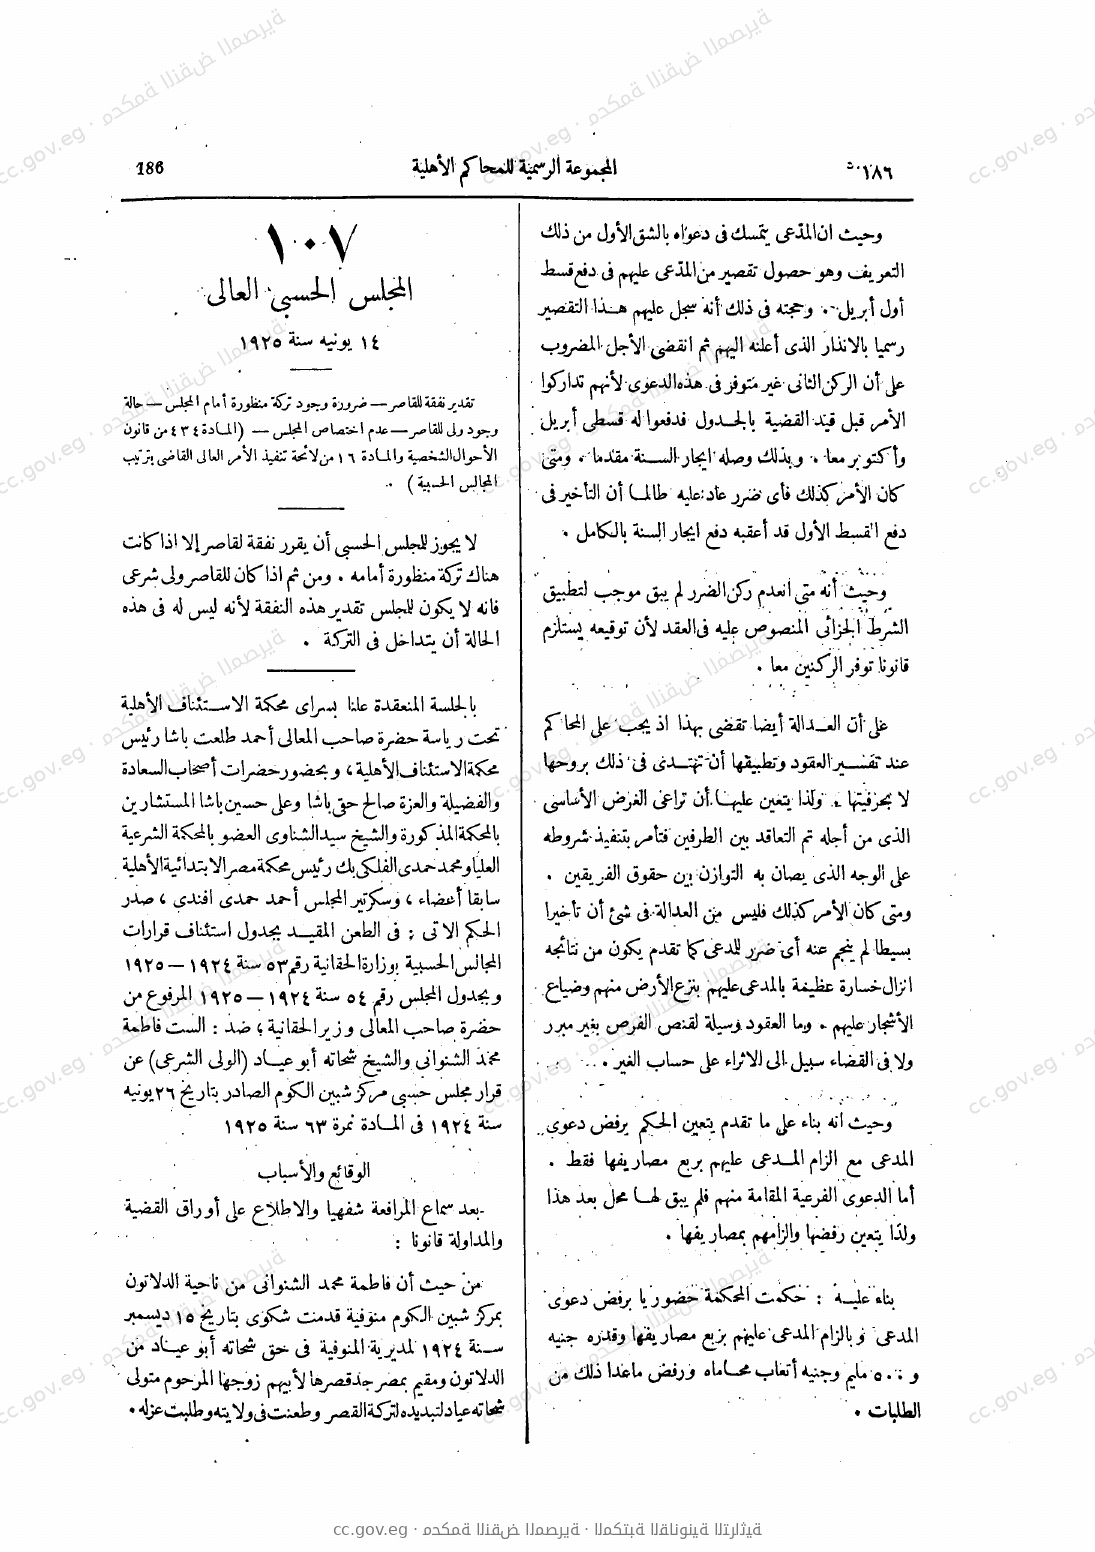 ١٨٦
المجموعة الرسمية للمحاكم الأهلية
186
وحيث ان المدّعى يتمسك فى دعواه بالشق الأول من ذلك
التعريف وهو حصول تقصير من المدّعى عليهم فى دفع قسط
أول أبريل . وحجته فى ذلك أنه سجل عليهم هذا التقصير
رسميا بالانذار الذى أعلنه اليهم ثم انقضى الأجل المضروب
على أن الركن الثانى غير متوفر فى هذه الدعوى لأنهم تداركوا
الأمر قبل قيد القضية بالجدول فدفعوا له قسطى أبريل
وأكتوبر معا . وبذلك وصله ايجار السنة مقدما . ومتى
كان الأمر كذلك فأى ضرر عاد عليه طالما أن التأخير فى
دفع القسط الأول قد أعقبه دفع ايجار السنة بالكامل .
وحيث أنه متى انعدم ركن الضرر لم يبق موجب لتطبيق
الشرط الجزائى المنصوص عليه فى العقد لأن توقيعه يستلزم
قانونا توفر الركنين معا .
على أن العدالة أيضا تقضى بهذا اذ يجب على المحاكم
عند تفسير العقود وتطبيقها أن تهتدى فى ذلك بروحها
لا بحرفيتها . ولذا يتعين عليها أن تراعى الغرض الأساسى
الذى من أجله تم التعاقد بين الطرفين فتأمر بتنفيذ شروطه
على الوجه الذى يصان به التوازن بين حقوق الفريقين .
ومتى كان الأمر كذلك فليس من العدالة فى شئ أن تأخيرا
بسيطا لم ينجم عنه أى ضرر للمدعى كما تقدم يكون من نتائجه
انزال خسارة عظيمة بالمدعى عليهم بنزع الأرض منهم وضياع
الأشجار عليهم . وما العقود وسيلة لقنص الفرص بغير مبرر
ولا فى القضاء سبيل الى الاثراء على حساب الغير .
وحيث أنه بناء على ما تقدم يتعين الحكم برفض دعوى
المدعى مع الزام المدعى عليهم بربع مصاريفها فقط .
أما الدعوى الفرعية المقامة منهم فلم يبق لها محل بعد هذا
ولذا يتعين رفضها والزامهم بمصاريفها .
بناء عليه : حكمت المحكمة حضوريا برفض دعوى
المدعى وبالزام المدعى عليهم بربع مصاريفها وقدره جنيه
و ٥٠٠ مليم وجنيه أتعاب محاماه ورفض ماعدا ذلك من
الطلبات .
١٠٧
المجلس الحسبى العالى
١٤ يونيه سنة ١٩٢٥
تقدير نفقة للقاصر — ضرورة وجود تركة منظورة أمام المجلس — حالة
وجود ولى للقاصر — عدم اختصاص المجلس — (المادة ٤٣٤ من قانون
الأحوال الشخصية والمادة ١٦ من لائحة تنفيذ الأمر العالى القاضى بترتيب
المجالس الحسبية) .
لا يجوز للمجلس الحسبى أن يقرر نفقة لقاصر إلا اذا كانت
هناك تركة منظورة أمامه . ومن ثم اذا كان للقاصر ولى شرعى
فانه لا يكون للمجلس تقدير هذه النفقة لأنه ليس له فى هذه
الحالة أن يتداخل فى التركة .
بالجلسة المنعقدة علنا بسراى محكمة الاستئناف الأهلية
تحت رياسة حضرة صاحب المعالى أحمد طلعت باشا رئيس
محكمة الاستئناف الأهلية ، وبحضور حضرات أصحاب السعادة
والفضيلة والعزة صالح حقى باشا وعلى حسين باشا المستشارين
بالمحكمة المذكورة والشيخ سيد الشناوى العضو بالمحكمة الشرعية
العليا ومحمد حمدى الفلكى بك رئيس محكمة مصر الابتدائية الأهلية
سابقا أعضاء ، وسكرتير المجلس أحمد حمدى افندى ، صدر
الحكم الآتى : فى الطعن المقيد بجدول استئناف قرارات
المجالس الحسبية بوزارة الحقانية رقم ٥٣ سنة ١٩٢٤ — ١٩٢٥
وبجدول المجلس رقم ٥٤ سنة ١٩٢٤ — ١٩٢٥ المرفوع من
حضرة صاحب المعالى وزير الحقانية ؛ ضد : الست فاطمة
محمد الشنوانى والشيخ شحاته أبو عياد (الولى الشرعى) عن
قرار مجلس حسبى مركز شبين الكوم الصادر بتاريخ ٢٦ يونيه
سنة ١٩٢٤ فى المادة نمرة ٦٣ سنة ١٩٢٥
الوقائع والأسباب
بعد سماع المرافعة شفهيا والاطلاع على أوراق القضية
والمداولة قانونا :
من حيث أن فاطمة محمد الشنوانى من ناحية الدلاتون
بمركز شبين الكوم منوفية قدمت شكوى بتاريخ ١٥ ديسمبر
سنة ١٩٢٤ لمديرية المنوفية فى حق شحاته أبو عياد من
الدلاتون ومقيم بمصر جد قصرها لأبيهم زوجها المرحوم متولى
شحاته عياد لتبديده لتركة القصر وطعنت فى ولايته وطلبت عزله .
cc.gov.eg · محكمة النقض المصرية · المكتبة القانونية التراثية